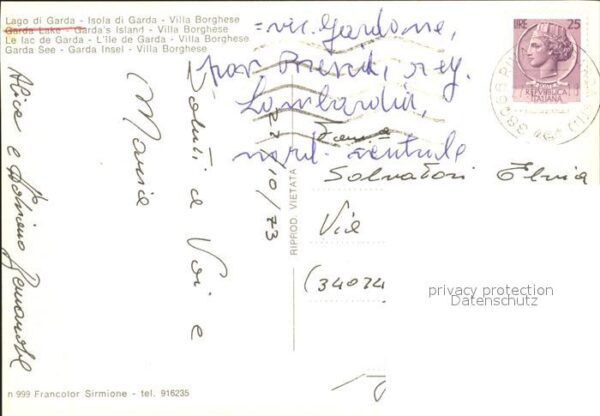 Lago di Garda - Isola di Garda - Villa Borghese
Garda Lake - Garda's Island - Villa Borghese
Le lac de Garda - L'île de Garda - Villa Borghese
Garda See - Garda Insel - Villa Borghese
= vic. Gardone,
prov. Brescia, reg.
Lombardia,
nord-centrale
LIRE 25
REPVBBLICA
ITALIANA
Saluti a Voi e
Maria
Alice e Adriano
27/10/73
RIPROD. VIETATA
Fam.
Salvatori Elvia
Via
(34074
privacy protection
Datenschutz
n 999 Francolor Sirmione - tel. 916235